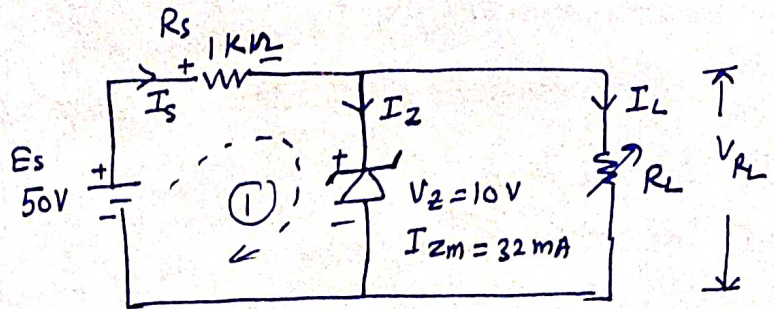 Rs
+ 1KΩ -
Is
Iz
IL
Es
50V
+
-
1
+
-
Vz=10V
Izm=32mA
RL
VRL